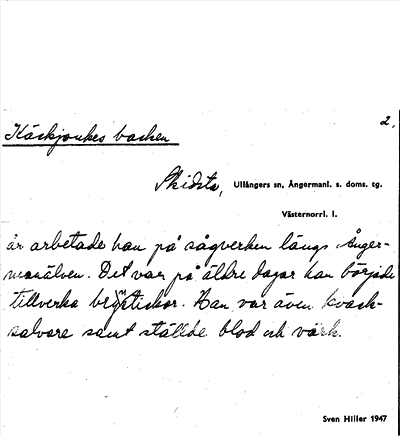 2.
Käskjonkes backen
Skidsta, Ullångers sn, Ångermanl. s. doms. tg.
Västernorrl. l.
år arbetade han på sågverken längs Ånger-
manälven. Det var på äldre dagar han började
tillverka brystiskor. Han var även kvack-
salvare samt ställde blod och värk.
Sven Hiller 1947